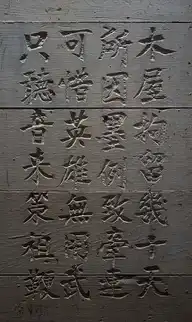 木屋拘留幾十天
所因墨例致牽連
可惜英雄無用武
只聽音来策祖鞭